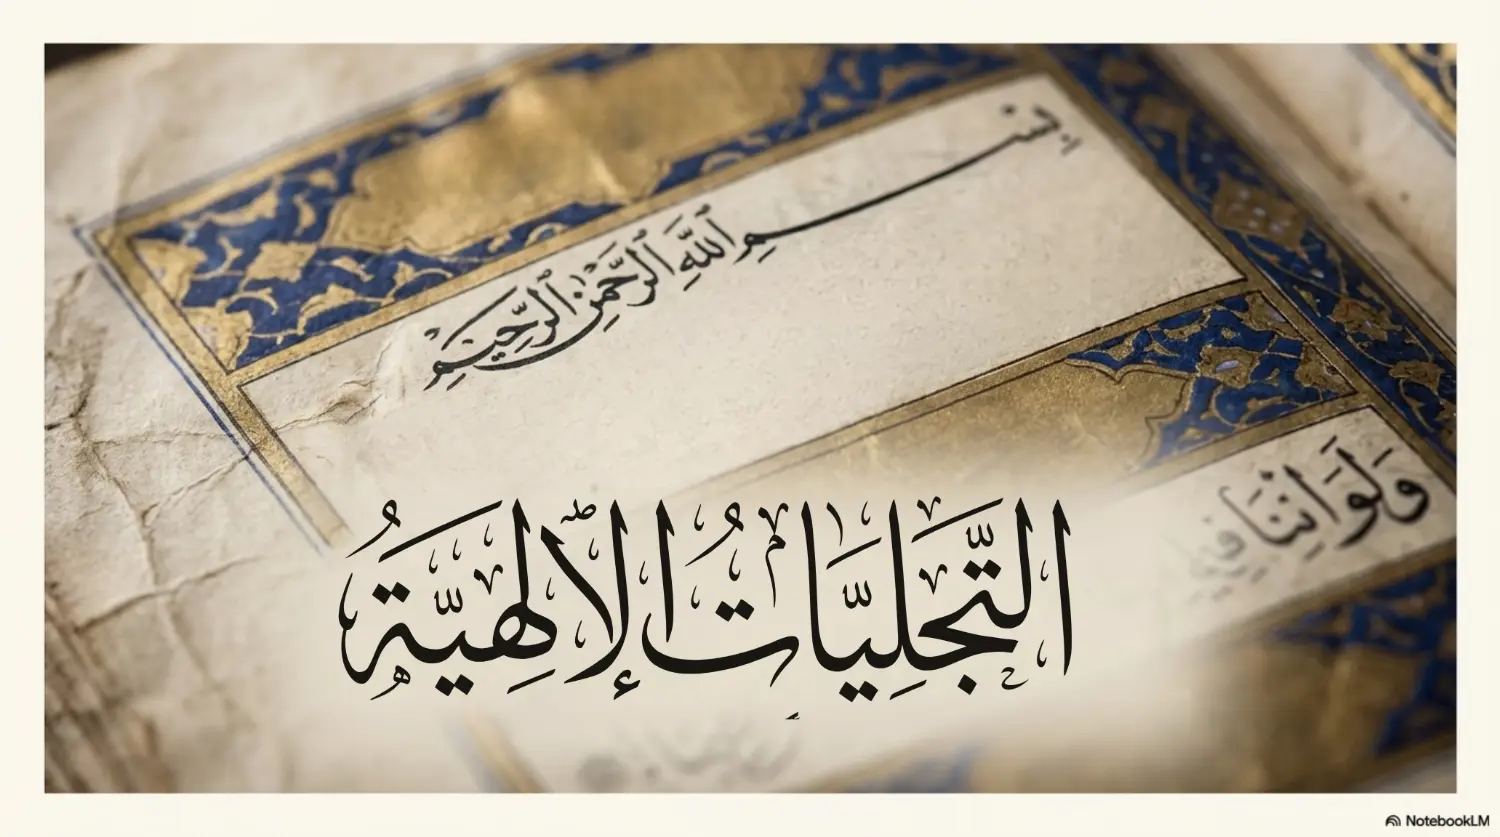 بِسْمِ اللَّهِ الرَّحْمَنِ الرَّحِيمِ
وَلَوْ اننا
التَّجَلِيَّاتُ الإِلَهِيَّةُ
NotebookLM